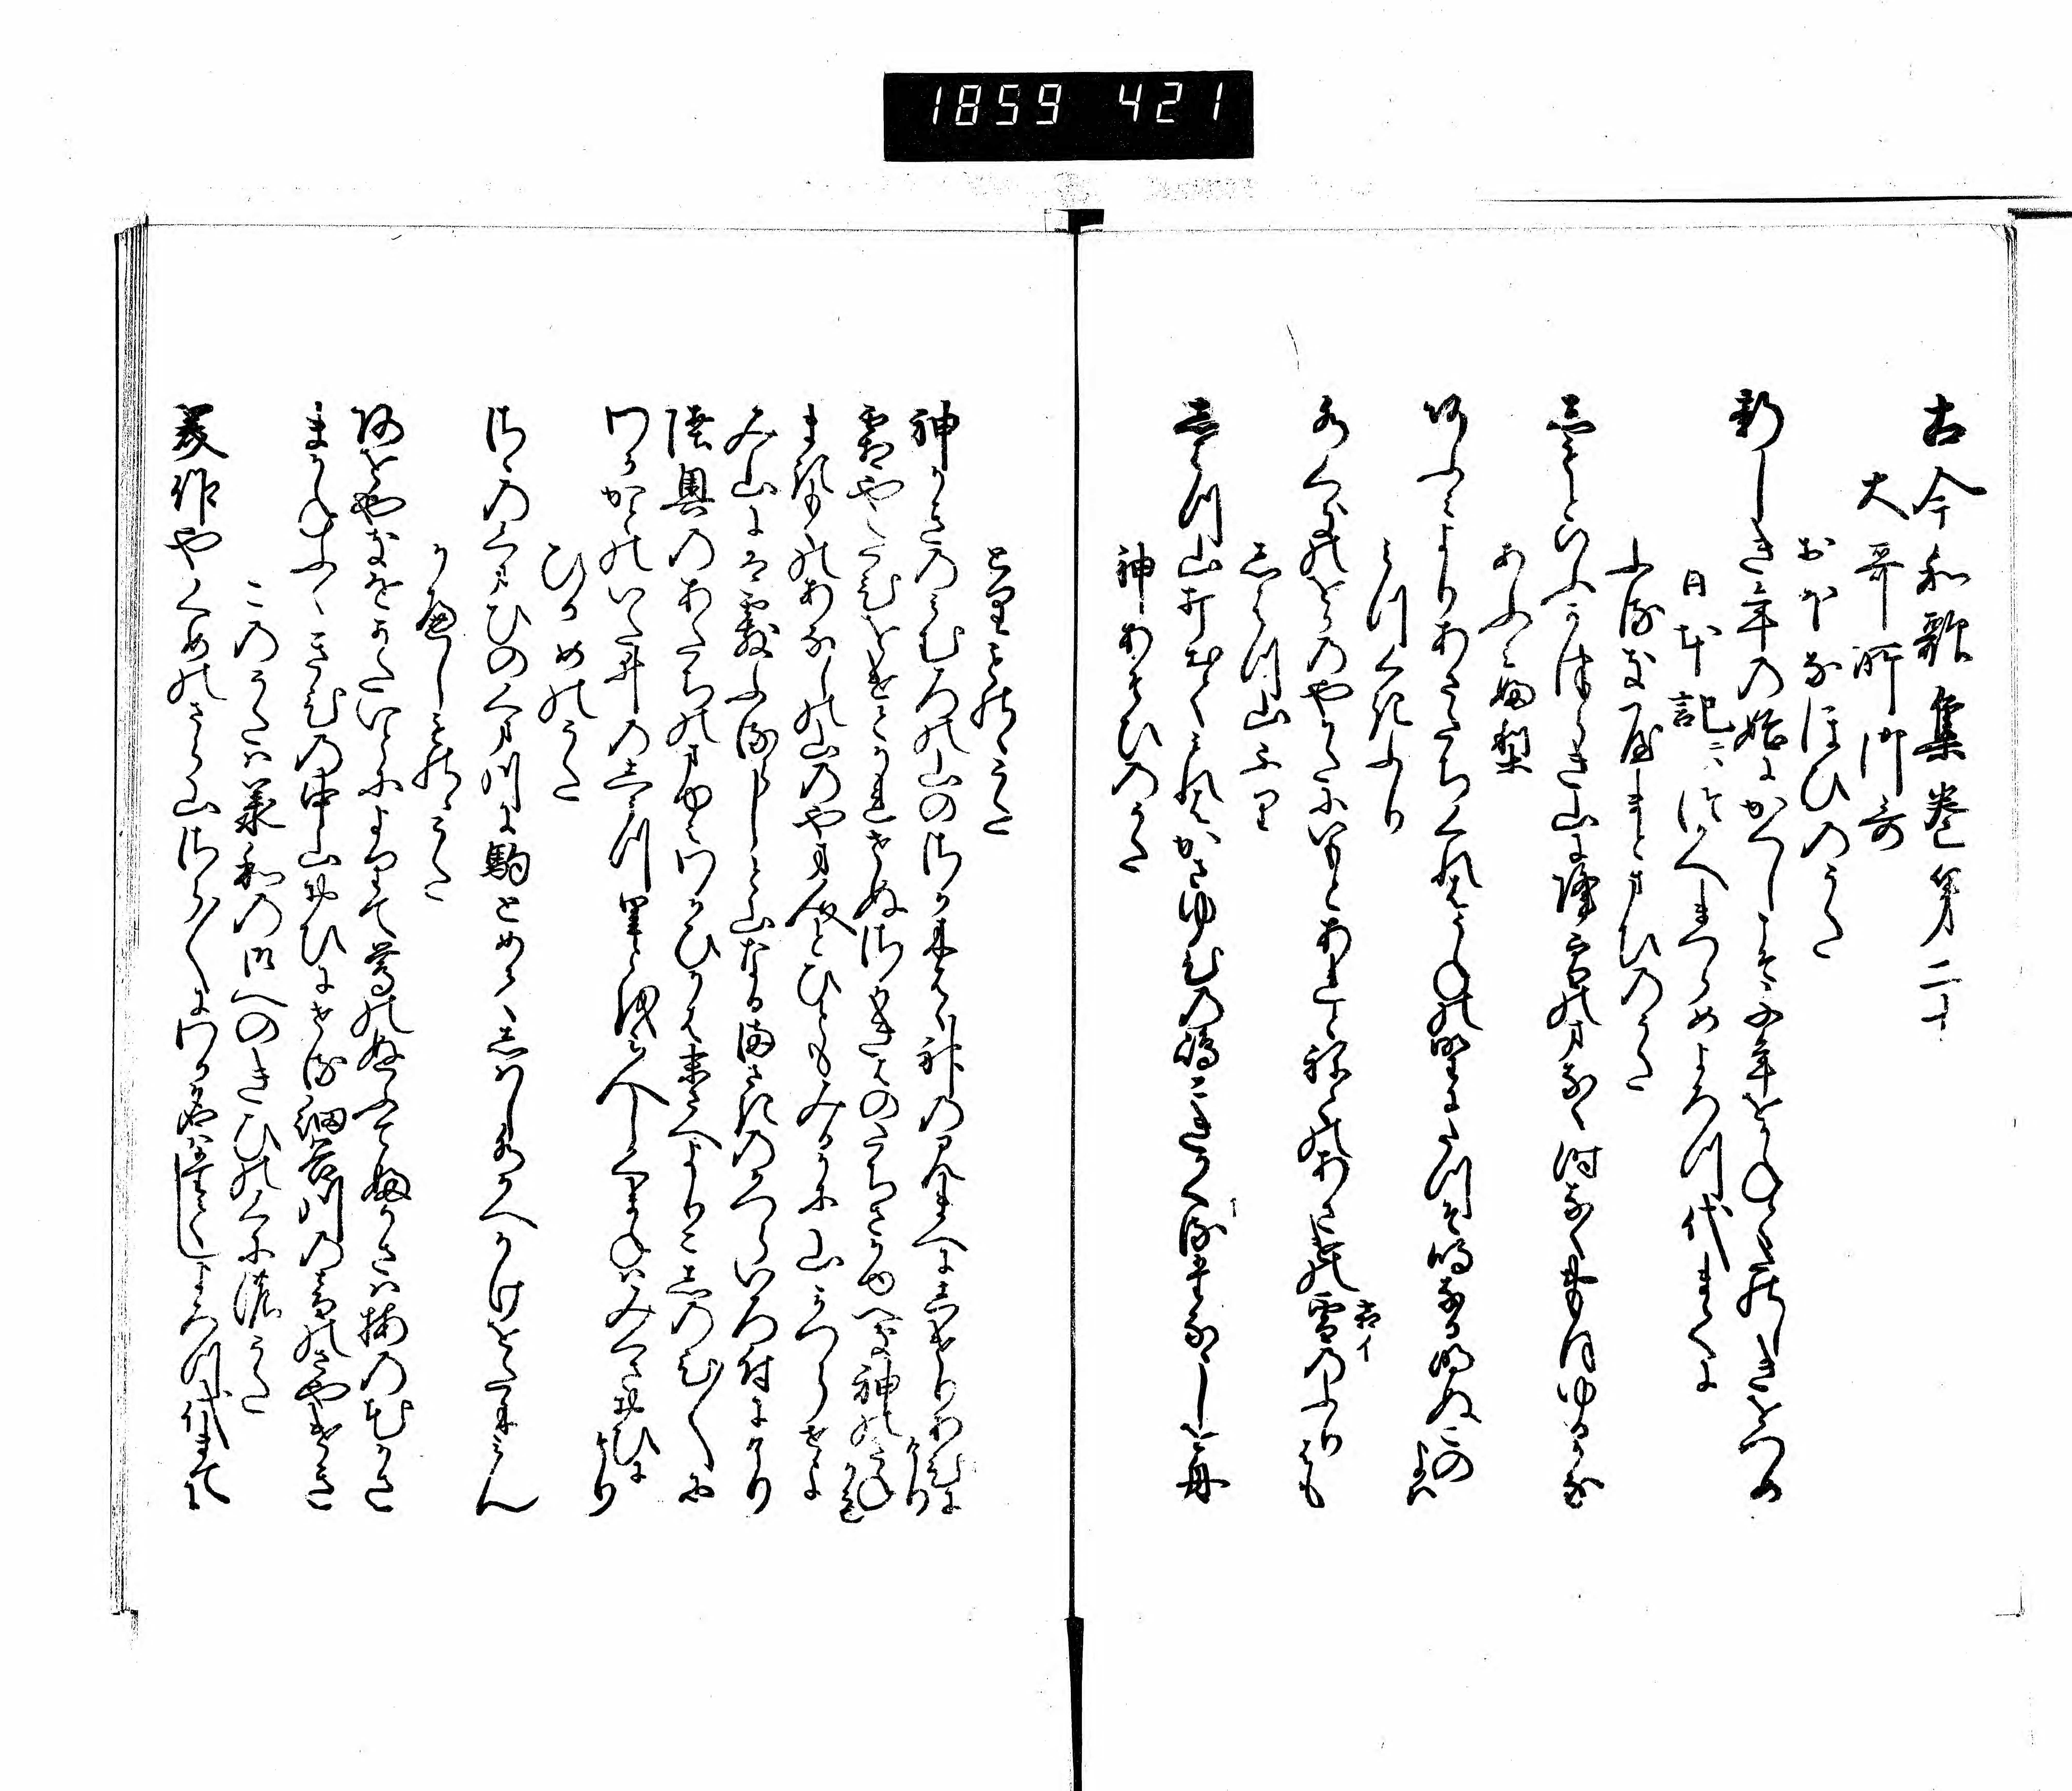 1859 421
古今和歌集巻第二十
大哥所御哥
おほなほひのうた
新しき年の始にかくしこそ千年をかねてたのしきをつめ
日本記ニハつかへまつらめよろつ代まてに
ふるきやまとまひのうた
しもとゆふかつらき山に降雪のまなく時なくおもほゆるかな
あふみふり
あふみよりあさたちくれはうねの野にたつそ鳴なる明ぬこのよは
みつくきふり
水くきのをかのやかたにいもとあれとねてのあさけの霜のふりはも
しはつ山ふり
しはつ山打出てみれはかさゆひの嶋こきかくるたなゝしを舟
神あそひのうた
とりものゝうた
神かきのみむろの山のさか木葉は神のみまへにしけりあひにけり
霜やたひをけとかれせぬさか木はのたちさかゆへき神のきねかも
まきもくのあなしの山のやま人とひともみるかに山かつらせよ
み山にはあられふるらしと山なるまさきのかつらいろ付にけり
陸奥のあたちのまゆみわかひかは末さへよりこしのひ〱に
わかかとのいた井のし水里とほみ人しくまねはみくさおひにけり
ひるめのうた
さゝのくまひのくま川に駒とめてしはし水かへかけをたにみん
かへしものゝうた
あをやきをかたいとによりて鶯のぬふてふかさは梅の花かさ
まかねふくきひの中山おひにせる細谷川の音のさやけさ
このうたは承和の御へのきひのくにの哥
美作やくめのさら山さら〱にわか名はたてしよろつ代まてに